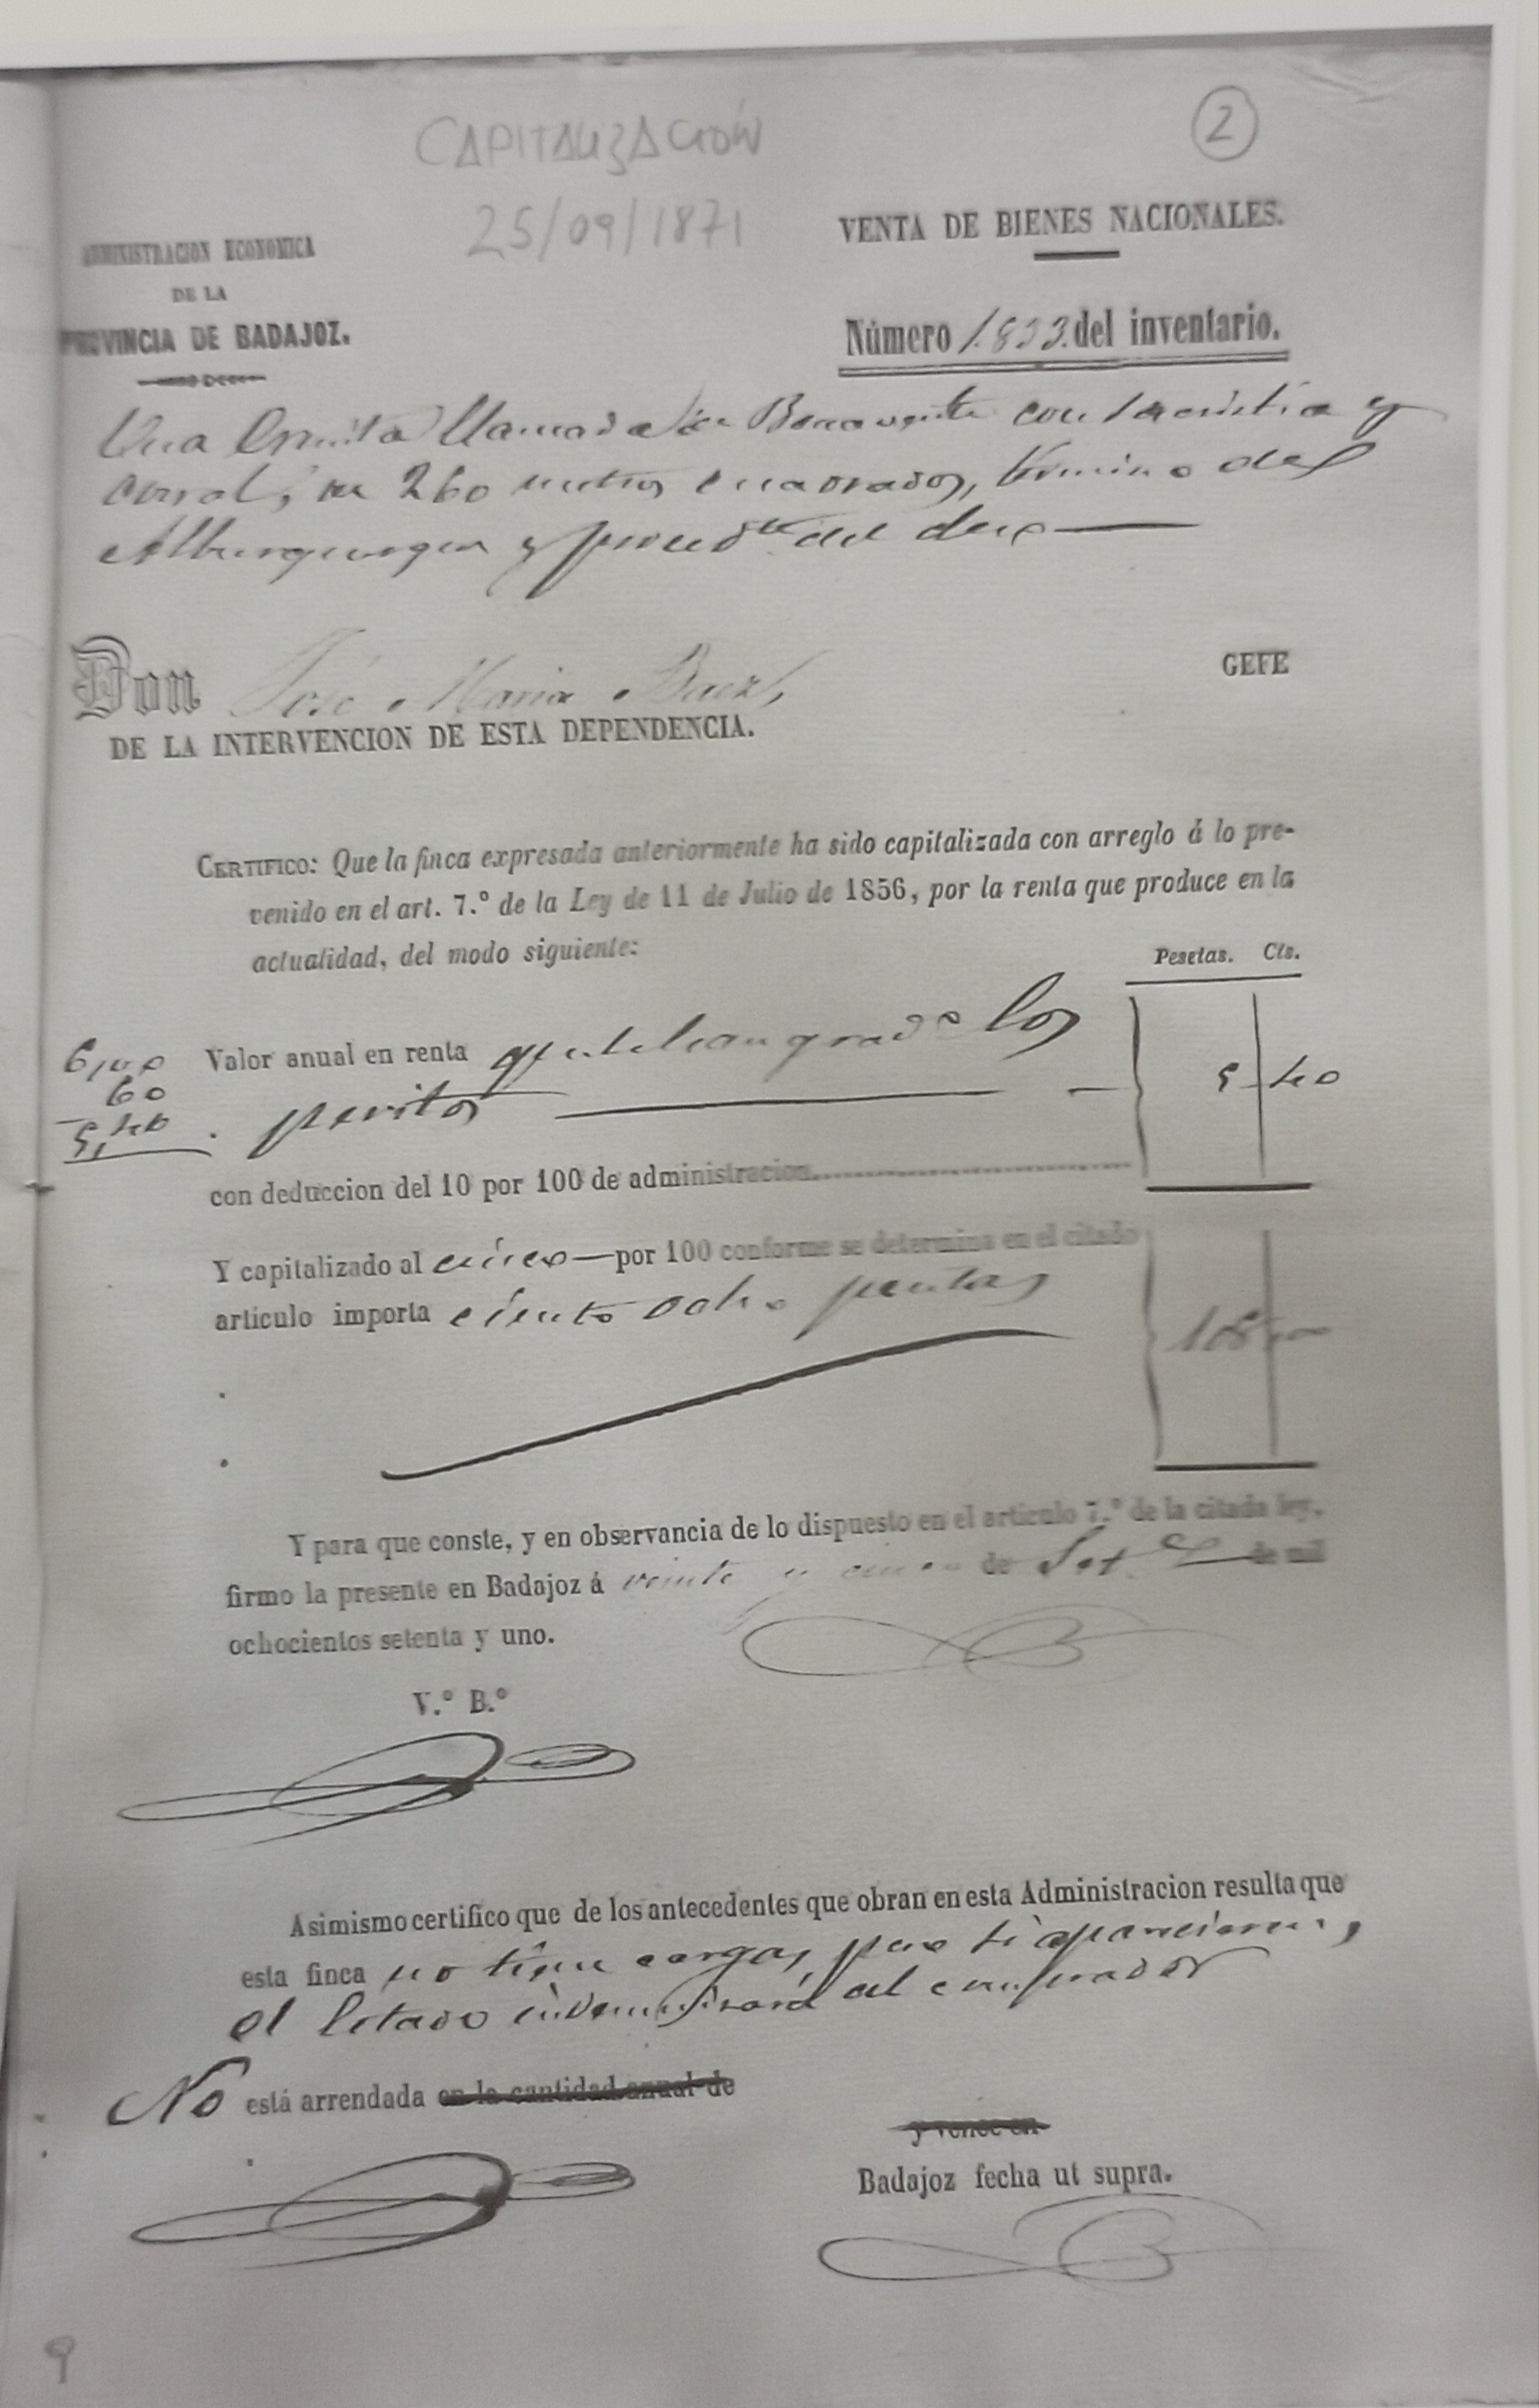 CAPITALIZACIÓN
25/09/1871
2
ADMINISTRACION ECONOMICA
DE LA
PROVINCIA DE BADAJOZ.
VENTA DE BIENES NACIONALES.
Número 1.833 del inventario.
Una Ermita llamada de Benavente con sacristia y
corral, de 260 metros cuadrados, término de
Alburquerque y procedte del clero
Don José Maria Baez, GEFE
DE LA INTERVENCION DE ESTA DEPENDENCIA.
CERTIFICO: Que la finca expresada anteriormente ha sido capitalizada con arreglo á lo pre-
venido en el art. 7.º de la Ley de 11 de Julio de 1856, por la renta que produce en la
actualidad, del modo siguiente:
Pesetas. Cts.
6,00
60
5,40
Valor anual en renta que le han graduado los
peritos
5 40
con deduccion del 10 por 100 de administracion
Y capitalizado al cinco por 100 conforme se determina en el citado
artículo importa ciento ocho pesetas
108,00
Y para que conste, y en observancia de lo dispuesto en el artículo 7.º de la citada ley,
firmo la presente en Badajoz á veinte y cinco de Set.e de mil
ochocientos setenta y uno.
V.º B.º
Asimismo certifico que de los antecedentes que obran en esta Administracion resulta que
esta finca no tiene cargas, pero si aparecieren,
el Estado indemnizará al comprador
No está arrendada en la cantidad anual de
y vence en
Badajoz fecha ut supra.
9